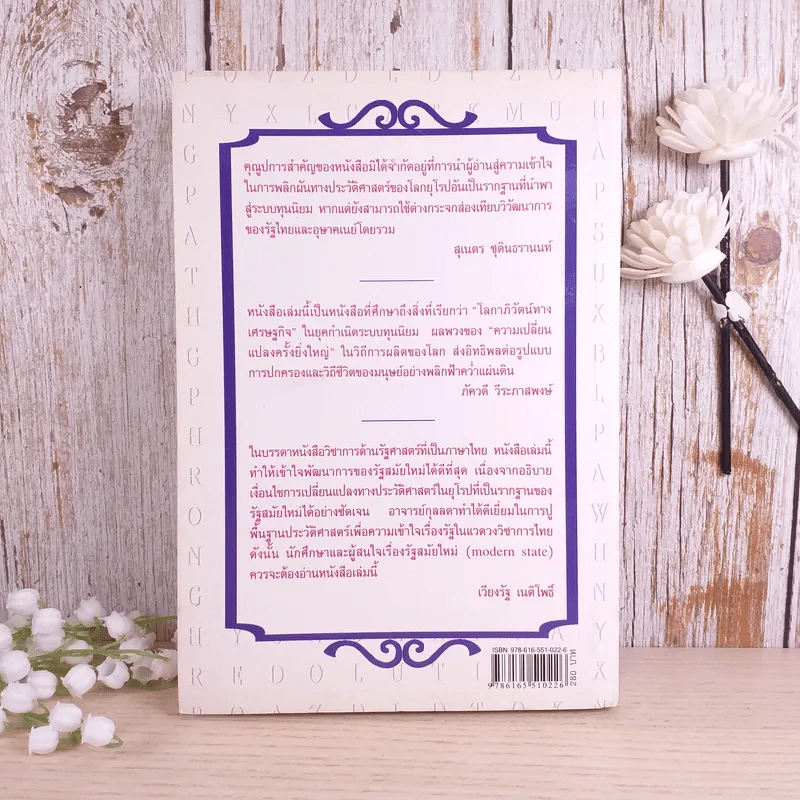 คุณูปการสำคัญของหนังสือมิได้จำกัดอยู่ที่การนำผู้อ่านสู่ความเข้าใจ
ในการพลิกผันทางประวัติศาสตร์ของโลกยุโรปอันเป็นรากฐานที่นำพา
สู่ระบบทุนนิยม หากแต่ยังสามารถใช้ต่างกระจกส่องเทียบวิวัฒนาการ
ของรัฐไทยและอุษาคเนย์โดยรวม
สุเนตร ชุตินธรานนท์
หนังสือเล่มนี้เป็นหนังสือที่ศึกษาถึงสิ่งที่เรียกว่า “โลกาภิวัตน์ทาง
เศรษฐกิจ” ในยุคกำเนิดระบบทุนนิยม ผลพวงของ “ความเปลี่ยน
แปลงครั้งยิ่งใหญ่” ในวิถีการผลิตของโลก ส่งอิทธิพลต่อรูปแบบ
การปกครองและวิถีชีวิตของมนุษย์อย่างพลิกฟ้าคว่ำแผ่นดิน
ภัควดี วีระภาสพงษ์
ในบรรดาหนังสือวิชาการด้านรัฐศาสตร์ที่เป็นภาษาไทย หนังสือเล่มนี้
ทำให้เข้าใจพัฒนาการของรัฐสมัยใหม่ได้ดีที่สุด เนื่องจากอธิบาย
เงื่อนไขการเปลี่ยนแปลงทางประวัติศาสตร์ในยุโรปที่เป็นรากฐานของ
รัฐสมัยใหม่ได้อย่างชัดเจน อาจารย์กุลลดาทำได้ดีเยี่ยมในการปู
พื้นฐานประวัติศาสตร์เพื่อความเข้าใจเรื่องรัฐในแวดวงวิชาการไทย
ดังนั้น นักศึกษาและผู้สนใจเรื่องรัฐสมัยใหม่ (modern state)
ควรจะต้องอ่านหนังสือเล่มนี้
เวียงรัฐ เนติโพธิ์
ISBN 978-616-551-022-6
9 786165 510226
280 บาท